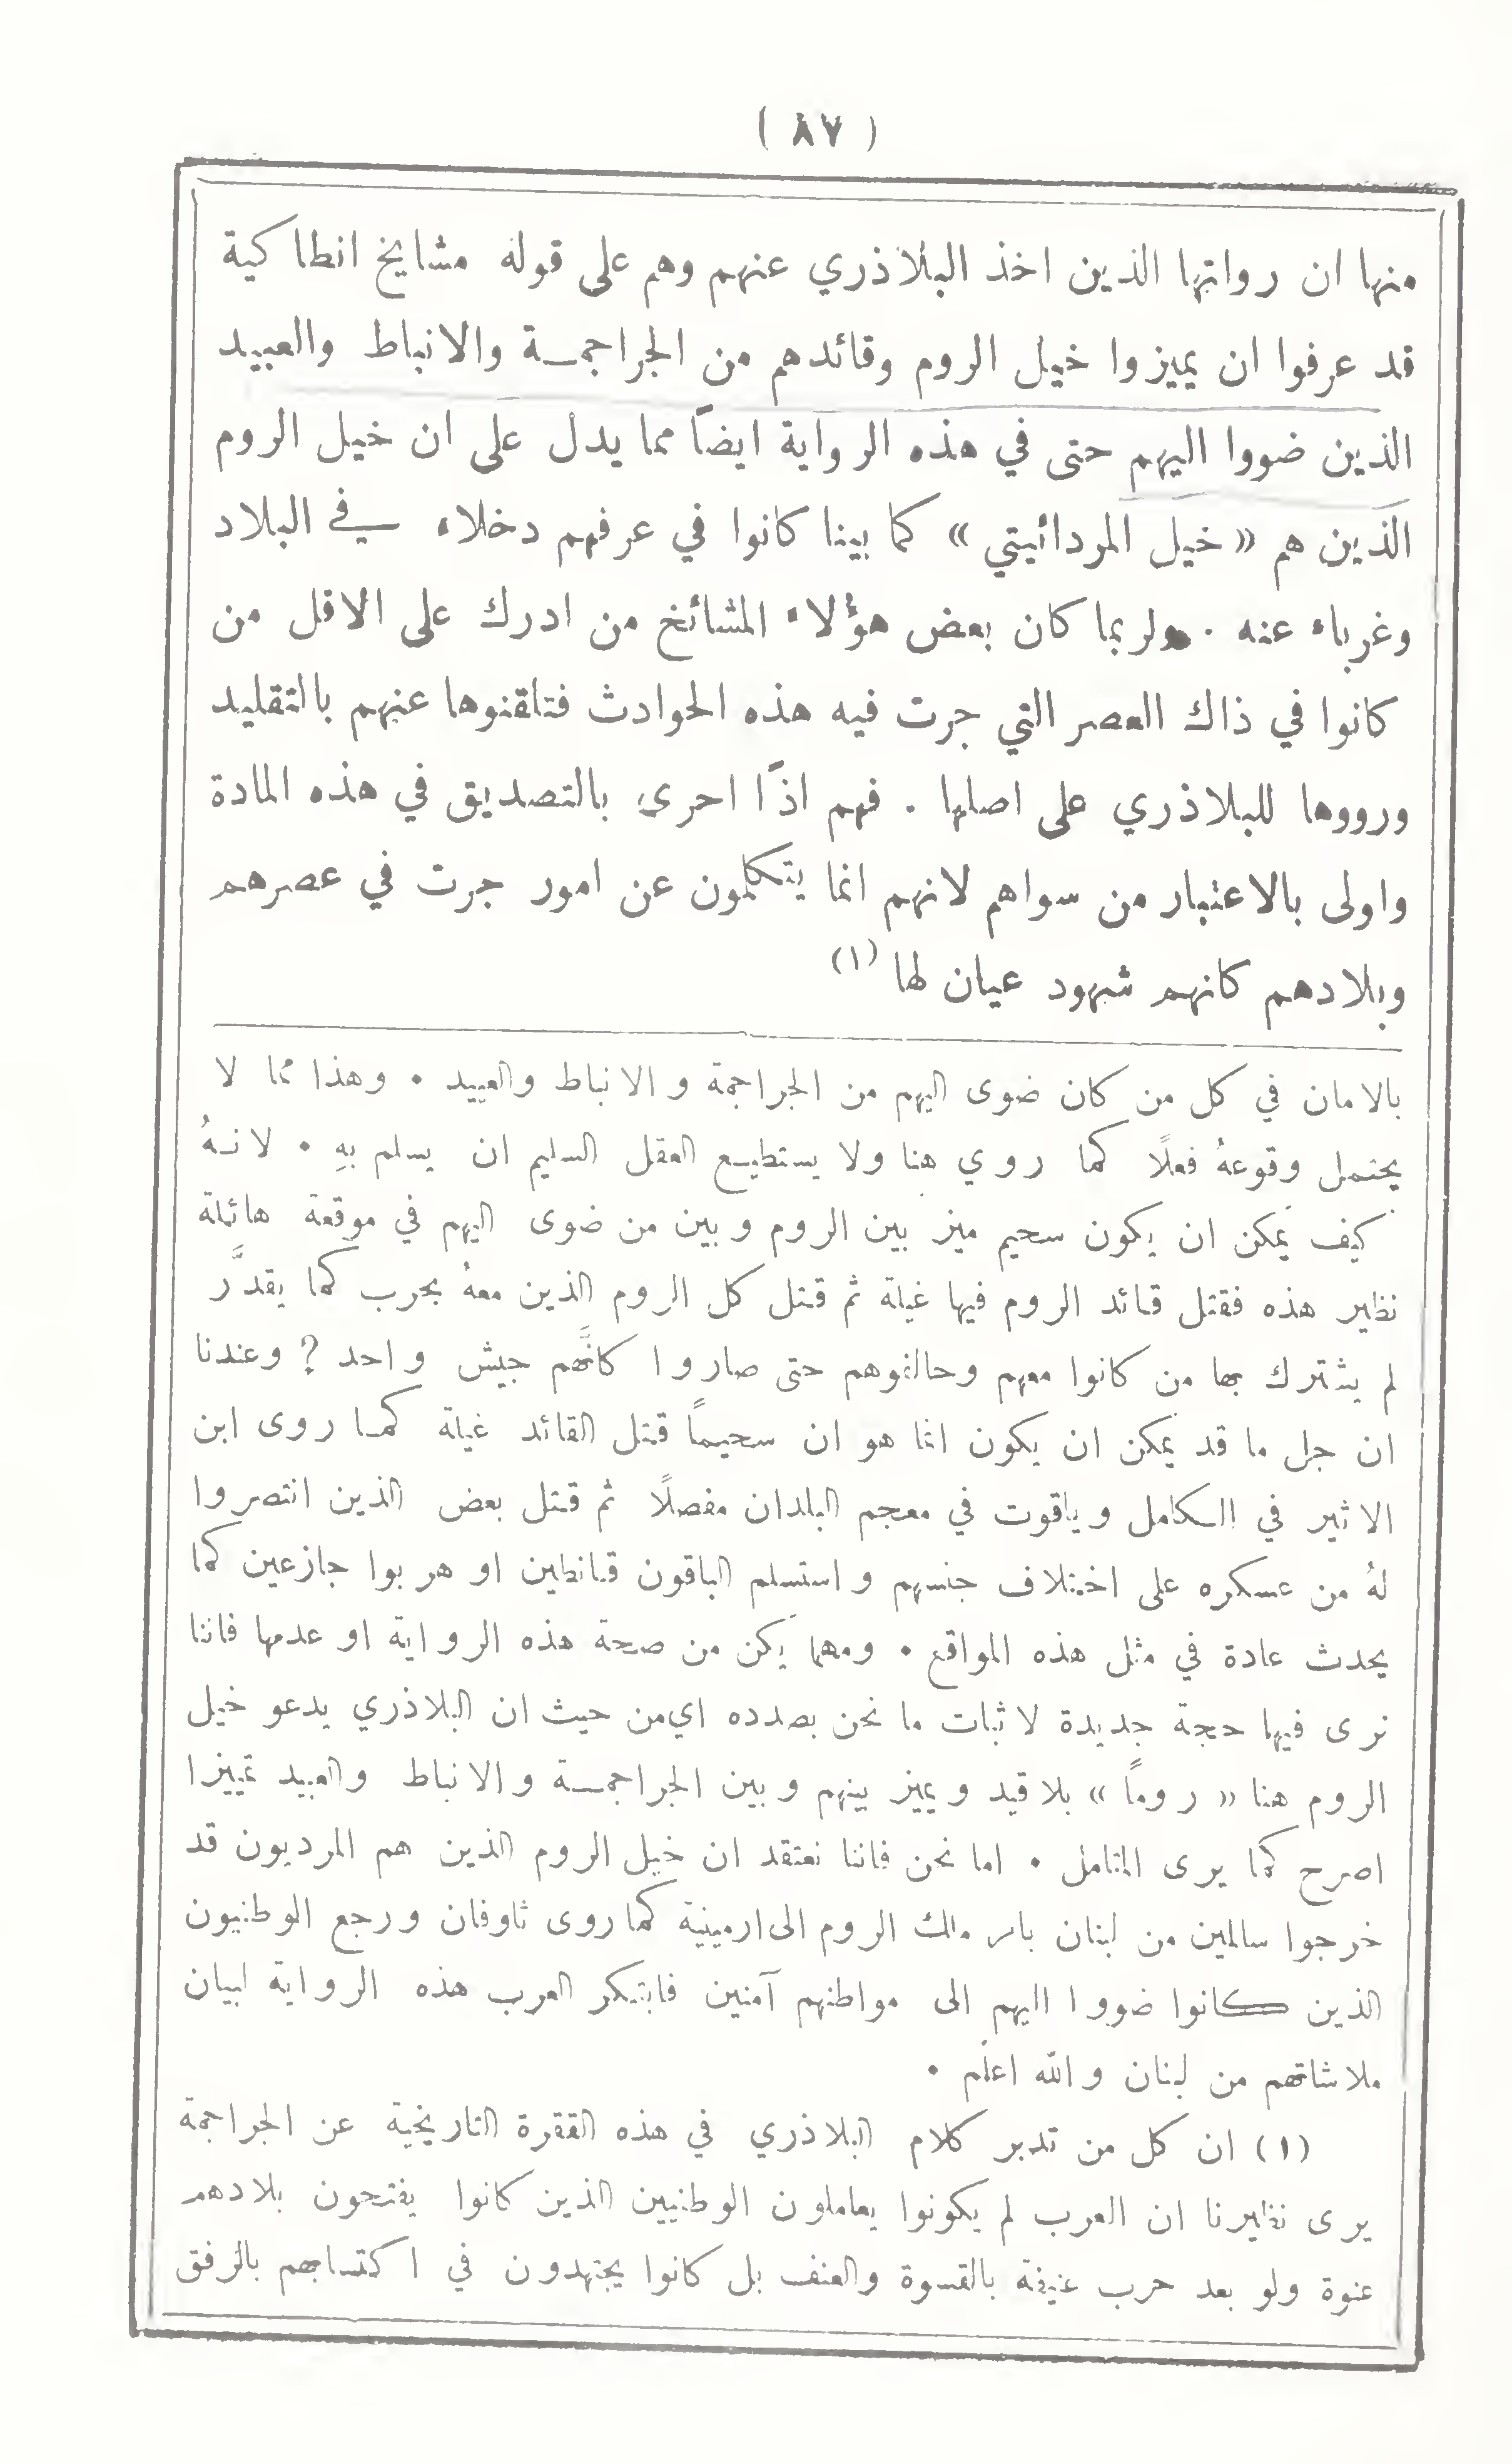 ( ٨٧ )
منها ان رواتها الذين اخذ البلاذري عنهم وهم على قوله مشايخ انطاكية
قد عرفوا ان يميزوا خيل الروم وقائدهم من الجراجمة والانباط والعبيد
الذين ضووا اليهم حتى في هذه الرواية ايضاً مما يدل على ان خيل الروم
الذين هم «خيل المردائيتي» كما بينا كانوا في عرفهم دخلاء في البلاد
وغرباء عنه . ولربما كان بعض هؤلاء المشائخ من ادرك على الاقل من
كانوا في ذاك العصر التي جرت فيه هذه الحوادث فتلقنوها عنهم بالتقليد
ورووها للبلاذري على اصلها . فهم اذاً احرى بالتصديق في هذه المادة
واولى بالاعتبار من سواهم لانهم انما يتكلمون عن امور جرت في عصرهم
وبلادهم كانهم شهود عيان لها (١)
بالامان في كل من كان ضوى اليهم من الجراجمة والانباط والعبيد . وهذا مما لا
يحتمل وقوعهُ فعلًا كما روي هنا ولا يستطيع العقل السليم ان يسلم بهِ . لانهُ
كيف يمكن ان يكون سحيم ميز بين الروم وبين من ضوى اليهم في موقعة هائلة
نظير هذه فقتل قائد الروم فيها غيلة ثم قتل كل الروم الذين معهُ بحرب كما يقدَّر
لم يشترك بها من كانوا معهم وحالفوهم حتى صاروا كانَّهم جيش واحد ? وعندنا
ان جل ما قد يمكن ان يكون انما هو ان سحيماً قتل القائد غيلة كما روى ابن
الاثير في الكامل وياقوت في معجم البلدان مفصلًا ثم قتل بعض الذين انتصروا
لهُ من عسكره على اختلاف جنسهم واستسلم الباقون قانطين او هربوا جازعين كما
يحدث عادة في مثل هذه المواقع . ومهما يكن من صحة هذه الرواية او عدمها فاننا
نرى فيها حجة جديدة لاثبات ما نحن بصدده اي من حيث ان البلاذري يدعو خيل
الروم هنا « روماً » بلا قيد ويميز بينهم وبين الجراجمة والانباط والعبيد تمييزا
اصرح كما يرى المتامل . اما نحن فاننا نعتقد ان خيل الروم الذين هم المرديون قد
خرجوا سالمين من لبنان بامر ملك الروم الى ارمينية كما روى ثاوفان ورجع الوطنيون
الذين كانوا ضووا اليهم الى مواطنهم آمنين فابتكر العرب هذه الرواية لبيان
ملاشاتهم من لبنان والله اعلم .
(١) ان كل من تدبر كلام البلاذري في هذه الفقرة التاريخية عن الجراجمة
يرى نظيرنا ان العرب لم يكونوا يعاملون الوطنيين الذين كانوا يفتحون بلادهم
عنوة ولو بعد حرب عنيفة بالقسوة والعنف بل كانوا يجتهدون في اكتسابهم بالرفق